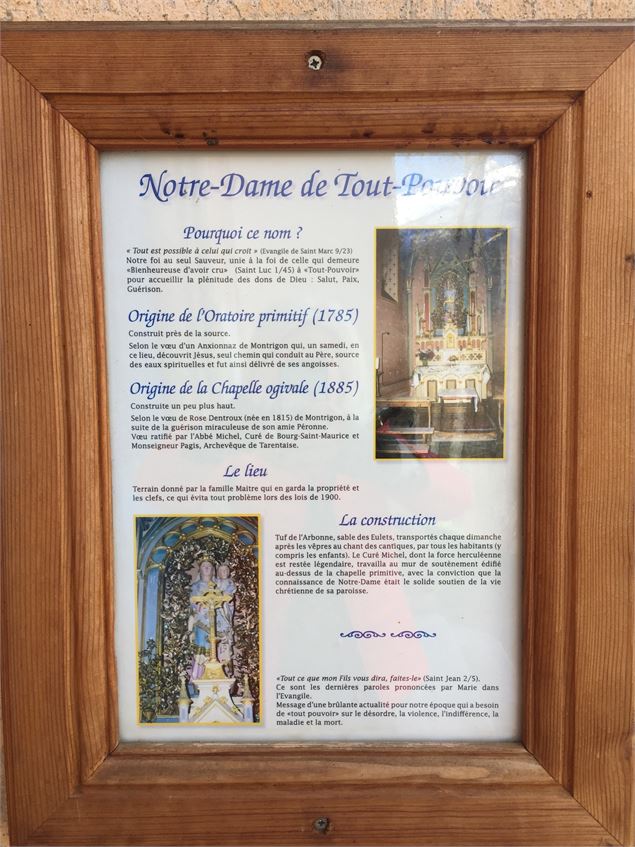 Notre-Dame de Tout-Pouvoir
Pourquoi ce nom ?
« Tout est possible à celui qui croit » (Evangile de Saint Marc 9/23)
Notre foi au seul Sauveur, unie à la foi de celle qui demeure
«Bienheureuse d'avoir cru» (Saint Luc 1/45) à «Tout-Pouvoir»
pour accueillir la plénitude des dons de Dieu : Salut, Paix,
Guérison.
Origine de l'Oratoire primitif (1785)
Construit près de la source.
Selon le vœu d'un Anxionnaz de Montrigon qui, un samedi, en
ce lieu, découvrit Jésus, seul chemin qui conduit au Père, source
des eaux spirituelles et fut ainsi délivré de ses angoisses.
Origine de la Chapelle ogivale (1885)
Construite un peu plus haut.
Selon le vœu de Rose Dentroux (née en 1815) de Montrigon, à la
suite de la guérison miraculeuse de son amie Péronne.
Vœu ratifié par l'Abbé Michel, Curé de Bourg-Saint-Maurice et
Monseigneur Pagis, Archevêque de Tarentaise.
Le lieu
Terrain donné par la famille Maitre qui en garda la propriété et
les clefs, ce qui évita tout problème lors des lois de 1900.
La construction
Tuf de l'Arbonne, sable des Eulets, transportés chaque dimanche
après les vêpres au chant des cantiques, par tous les habitants (y
compris les enfants). Le Curé Michel, dont la force herculéenne
est restée légendaire, travailla au mur de soutènement édifié
au-dessus de la chapelle primitive, avec la conviction que la
connaissance de Notre-Dame était le solide soutien de la vie
chrétienne de sa paroisse.
«Tout ce que mon Fils vous dira, faites-le» (Saint Jean 2/5).
Ce sont les dernières paroles prononcées par Marie dans
l'Evangile.
Message d'une brûlante actualité pour notre époque qui a besoin
de «tout pouvoir» sur le désordre, la violence, l'indifférence, la
maladie et la mort.